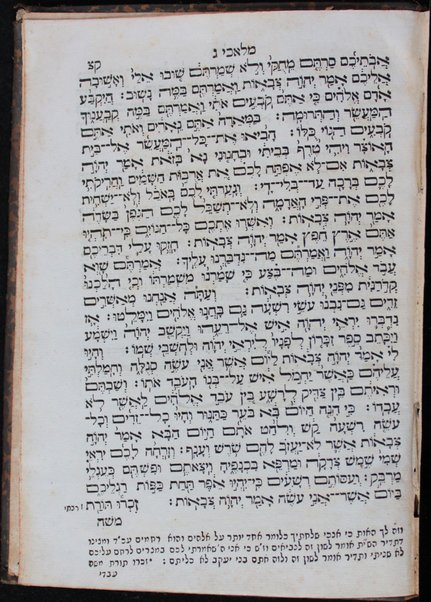 מלאכי ג
קצ
אבתיכם סרתם מחקי ולא שמרתם שובו אלי ואשובה
אליכם אמר יהוה צבאות ואמרתם במה נשוב: היקבע
אדם אלהים כי אתם קבעים אתי ואמרתם במה קבענוך
המעשר והתרומה: במארה אתם נארים ואתי אתם
קבעים הגוי כלו: הביאו את־כל־המעשר אל־בית
האוצר ויהי טרף בביתי ובחנוני נא בזאת אמר יהוה
צבאות אם לא אפתח לכם את ארבות השמים והריקתי
לכם ברכה עד־בלי־די: וגערתי לכם באכל ולא־ישחית
לכם את־פרי האדמה ולא־תשכל לכם הגפן בשדה
אמר יהוה צבאות: ואשרו אתכם כל־הגוים כי־תהיו
אתם ארץ חפץ אמר יהוה צבאות: חזקו עלי דבריכם
אמר יהוה ואמרתם מה־נדברנו עליך: אמרתם שוא
עבד אלהים ומה־בצע כי שמרנו משמרתו וכי הלכנו
קדרנית מפני יהוה צבאות: ועתה אנחנו מאשרים
זדים גם־נבנו עשי רשעה גם בחנו אלהים וימלטו: אז
נדברו יראי יהוה איש אל־רעהו ויקשב יהוה וישמע
ויכתב ספר זכרון לפניו ליראי יהוה ולחשבי שמו: והיו
לי אמר יהוה צבאות ליום אשר אני עשה סגלה וחמלתי
עליהם כאשר יחמל איש על־בנו העבד אתו: ושבתם
וראיתם בין צדיק לרשע בין עבד אלהים לאשר לא
עבדו: כי הנה היום בא בער כתנור והיו כל־זדים וכל־
עשה רשעה קש ולהט אתם היום הבא אמר יהוה
צבאות אשר לא־יעזב להם שרש וענף: וזרחה לכם יראי
שמי שמש צדקה ומרפא בכנפיה ויצאתם ופשתם כעגלי
מרבק: ועסותם רשעים כי־יהיו אפר תחת כפות רגליכם
ביום אשר־אני עשה אמר יהוה צבאות: זכרו תורת
ז רבתי
משה
וזה לך האות כי אנכי שלחתיך כלומר אחד יותר על אלהים והוא רחמים עכ״ד ומנינו
לא שניתי ותדיר אומר לשון זה ולוה חתם בני יעקב לא כליתם: זכרו תורת משה
עבדי